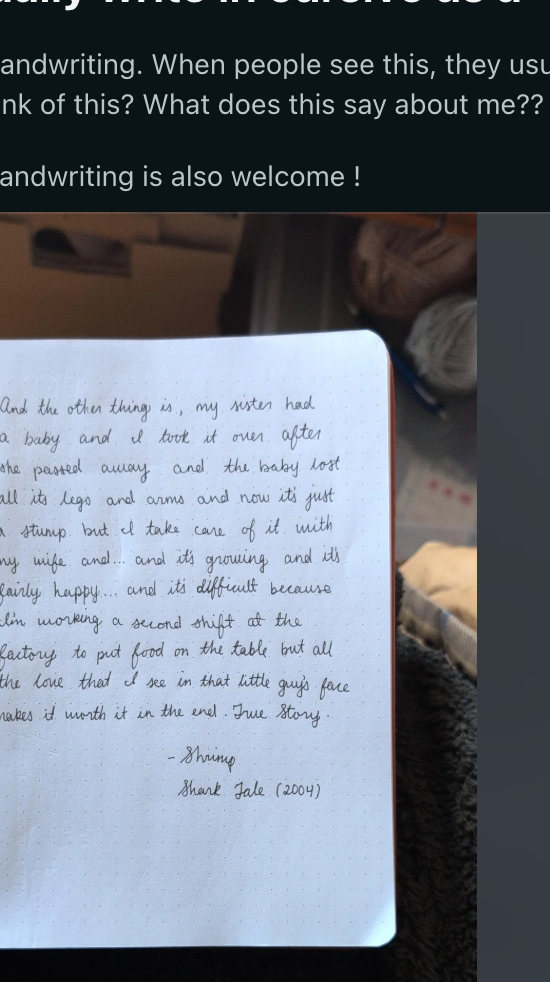 ually write in cursive as a
andwriting. When people see this, they usu
nk of this? What does this say about me??
andwriting is also welcome !
And the other thing is, my sister had
a baby and I took it over after
she passed away and the baby lost
all its legs and arms and now it's just
a stump but I take care of it with
my wife and... and it's growing and it's
fairly happy... and it's difficult because
I'm working a second shift at the
factory to put food on the table but all
the love that I see in that little guy's face
makes it worth it in the end. True Story.
- Shrimp
Shark Tale (2004)